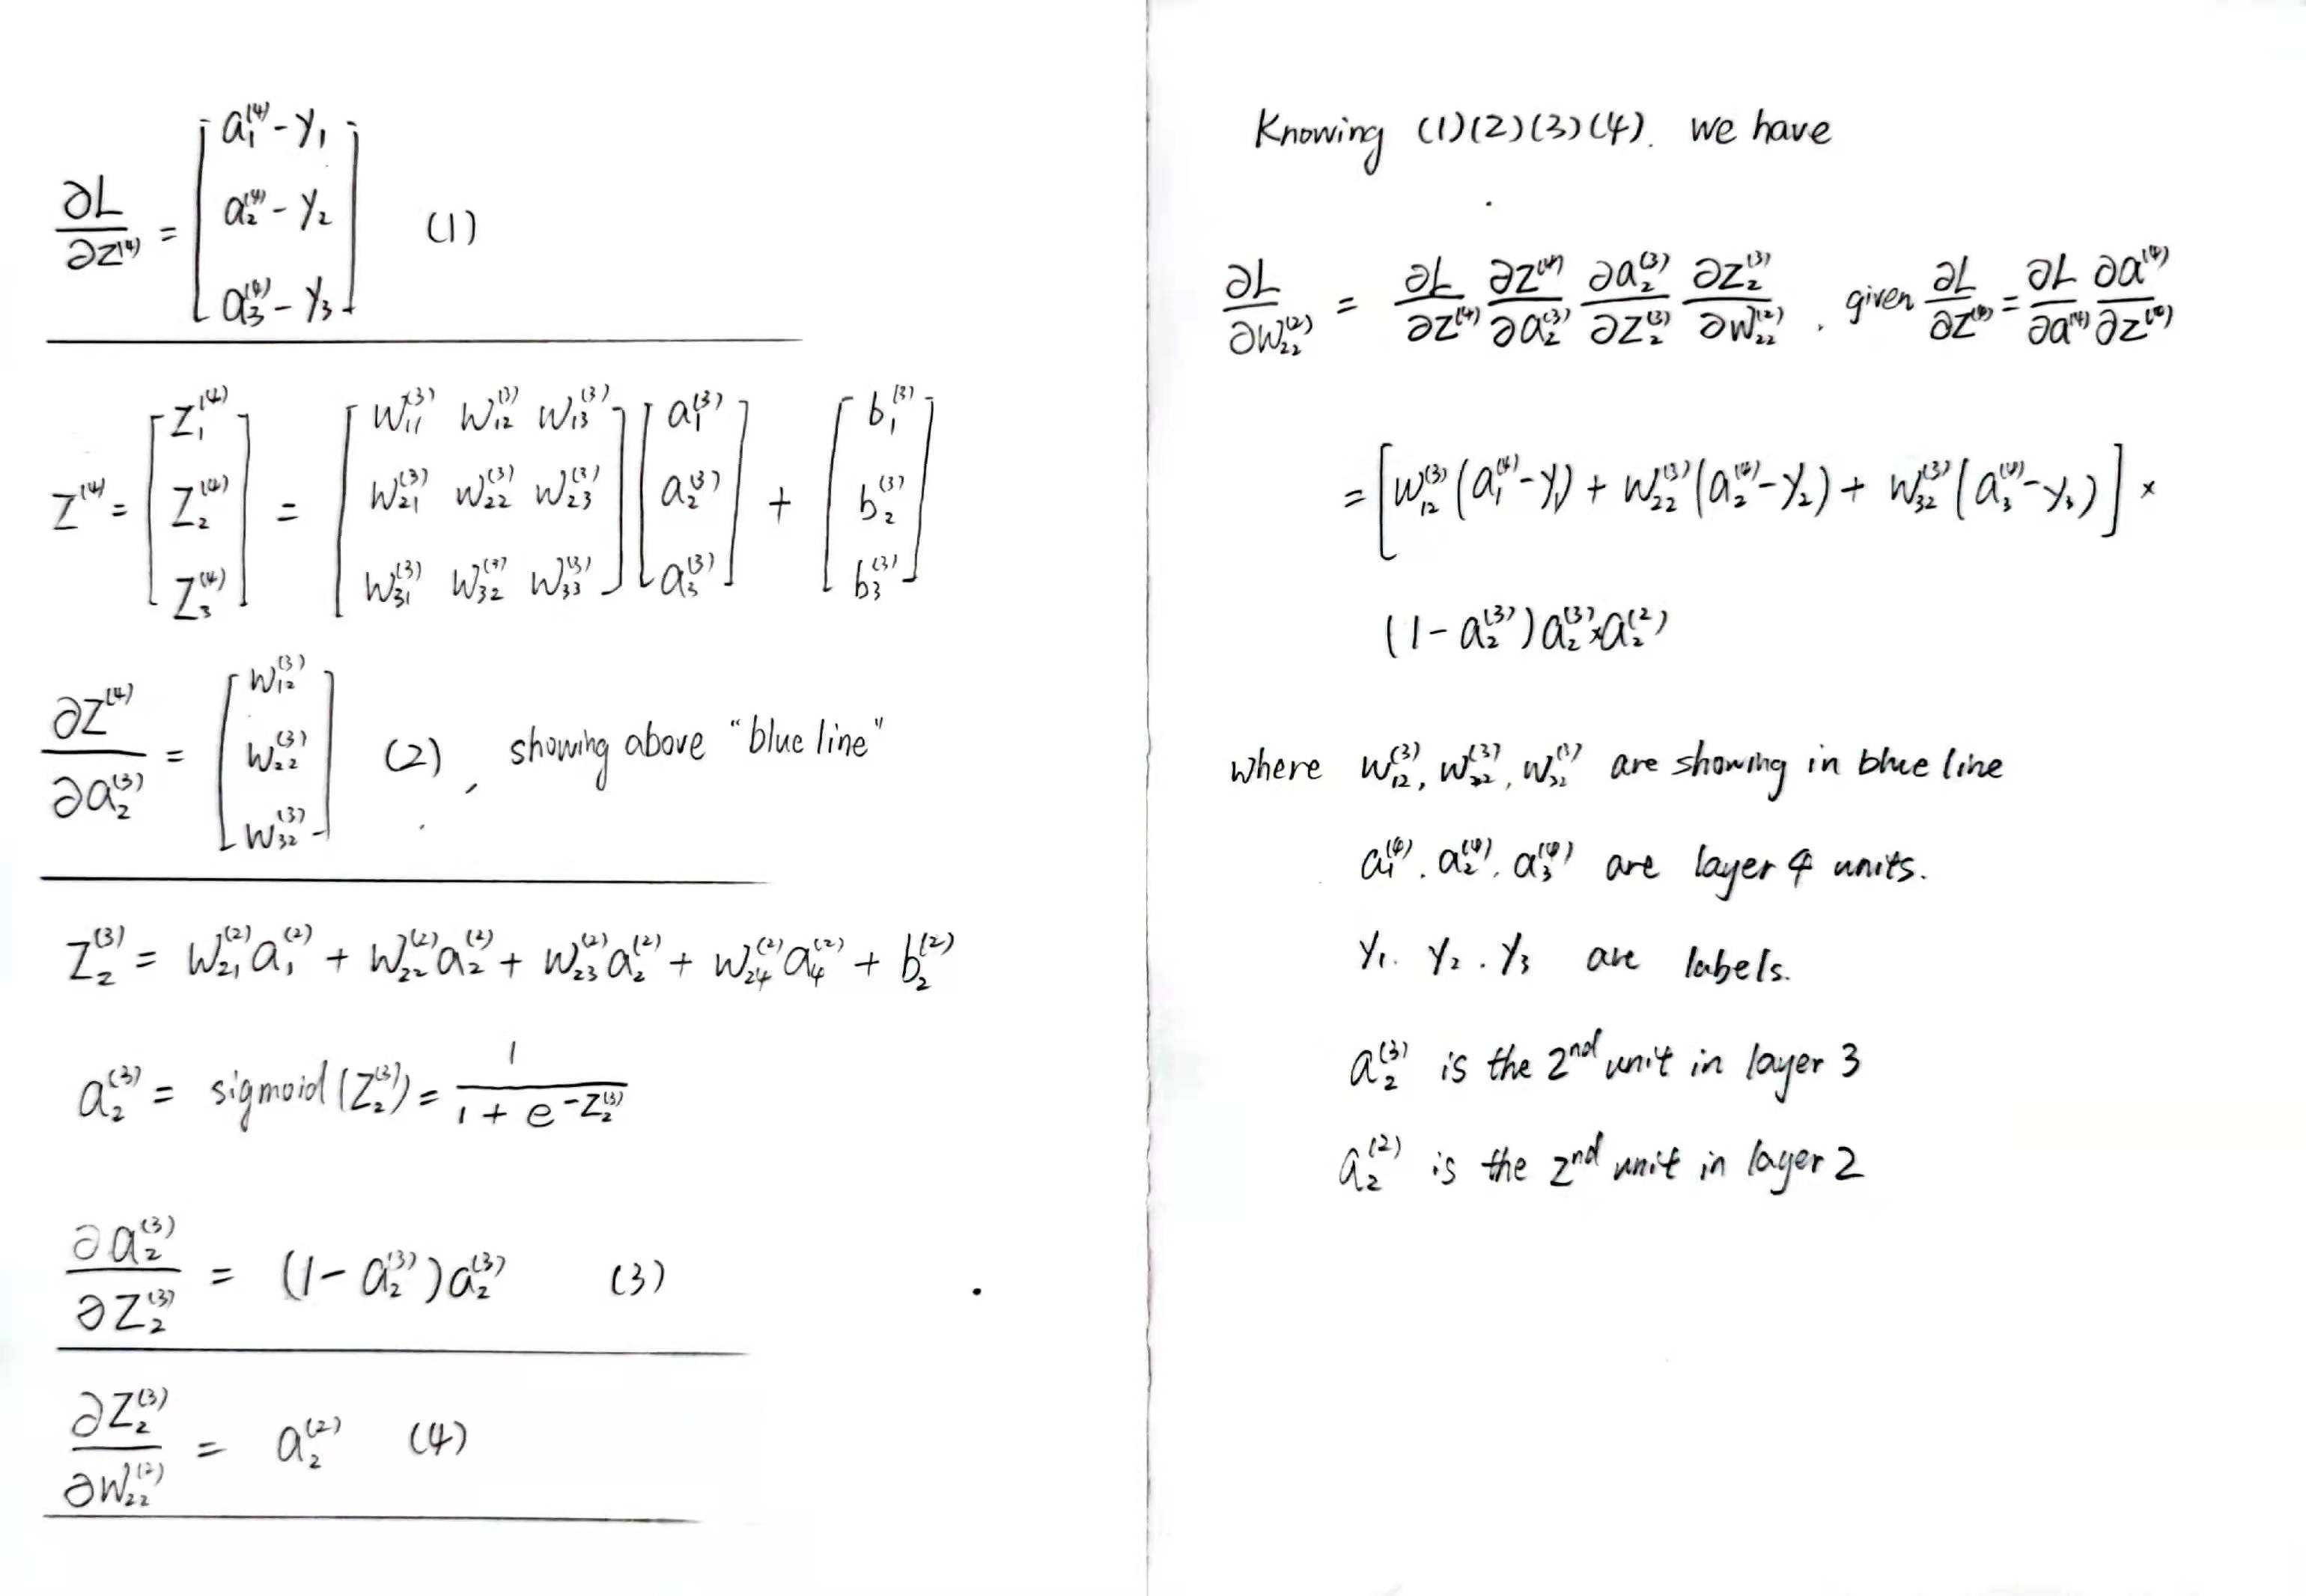 ∂L/∂Z⁽⁴⁾ = [a₁⁽⁴⁾ - y₁; a₂⁽⁴⁾ - y₂; a₃⁽⁴⁾ - y₃] (1)
Z⁽⁴⁾ = [Z₁⁽⁴⁾; Z₂⁽⁴⁾; Z₃⁽⁴⁾] = [W₁₁⁽³⁾ W₁₂⁽³⁾ W₁₃⁽³⁾; W₂₁⁽³⁾ W₂₂⁽³⁾ W₂₃⁽³⁾; W₃₁⁽³⁾ W₃₂⁽³⁾ W₃₃⁽³⁾] [a₁⁽³⁾; a₂⁽³⁾; a₃⁽³⁾] + [b₁⁽³⁾; b₂⁽³⁾; b₃⁽³⁾]
∂Z⁽⁴⁾/∂a₂⁽³⁾ = [W₁₂⁽³⁾; W₂₂⁽³⁾; W₃₂⁽³⁾] (2), showing above "blue line"
Z₂⁽³⁾ = W₂₁⁽²⁾a₁⁽²⁾ + W₂₂⁽²⁾a₂⁽²⁾ + W₂₃⁽²⁾a₂⁽²⁾ + W₂₄⁽²⁾a₄⁽²⁾ + b₂⁽²⁾
a₂⁽³⁾ = sigmoid(Z₂⁽³⁾) = 1/(1 + e^(-Z₂⁽³⁾))
∂a₂⁽³⁾/∂Z₂⁽³⁾ = (1 - a₂⁽³⁾)a₂⁽³⁾ (3)
∂Z₂⁽³⁾/∂W₂₂⁽²⁾ = a₂⁽²⁾ (4)
Knowing (1)(2)(3)(4). we have
∂L/∂W₂₂⁽²⁾ = ∂L/∂Z⁽⁴⁾ ∂Z⁽⁴⁾/∂a₂⁽³⁾ ∂a₂⁽³⁾/∂Z₂⁽³⁾ ∂Z₂⁽³⁾/∂W₂₂⁽²⁾, given ∂L/∂Z⁽⁴⁾ = ∂L/∂a⁽⁴⁾ ∂a⁽⁴⁾/∂z⁽⁴⁾
= [W₁₂⁽³⁾(a₁⁽⁴⁾ - y₁) + W₂₂⁽³⁾(a₂⁽⁴⁾ - y₂) + W₃₂⁽³⁾(a₃⁽⁴⁾ - y₃)] ×
(1 - a₂⁽³⁾)a₂⁽³⁾ × a₂⁽²⁾
where W₁₂⁽³⁾, W₂₂⁽³⁾, W₃₂⁽³⁾ are showing in blue line
a₁⁽⁴⁾. a₂⁽⁴⁾. a₃⁽⁴⁾ are layer 4 units.
y₁. y₂. y₃ are labels.
a₂⁽³⁾ is the 2nd unit in layer 3
a₂⁽²⁾ is the 2nd unit in layer 2